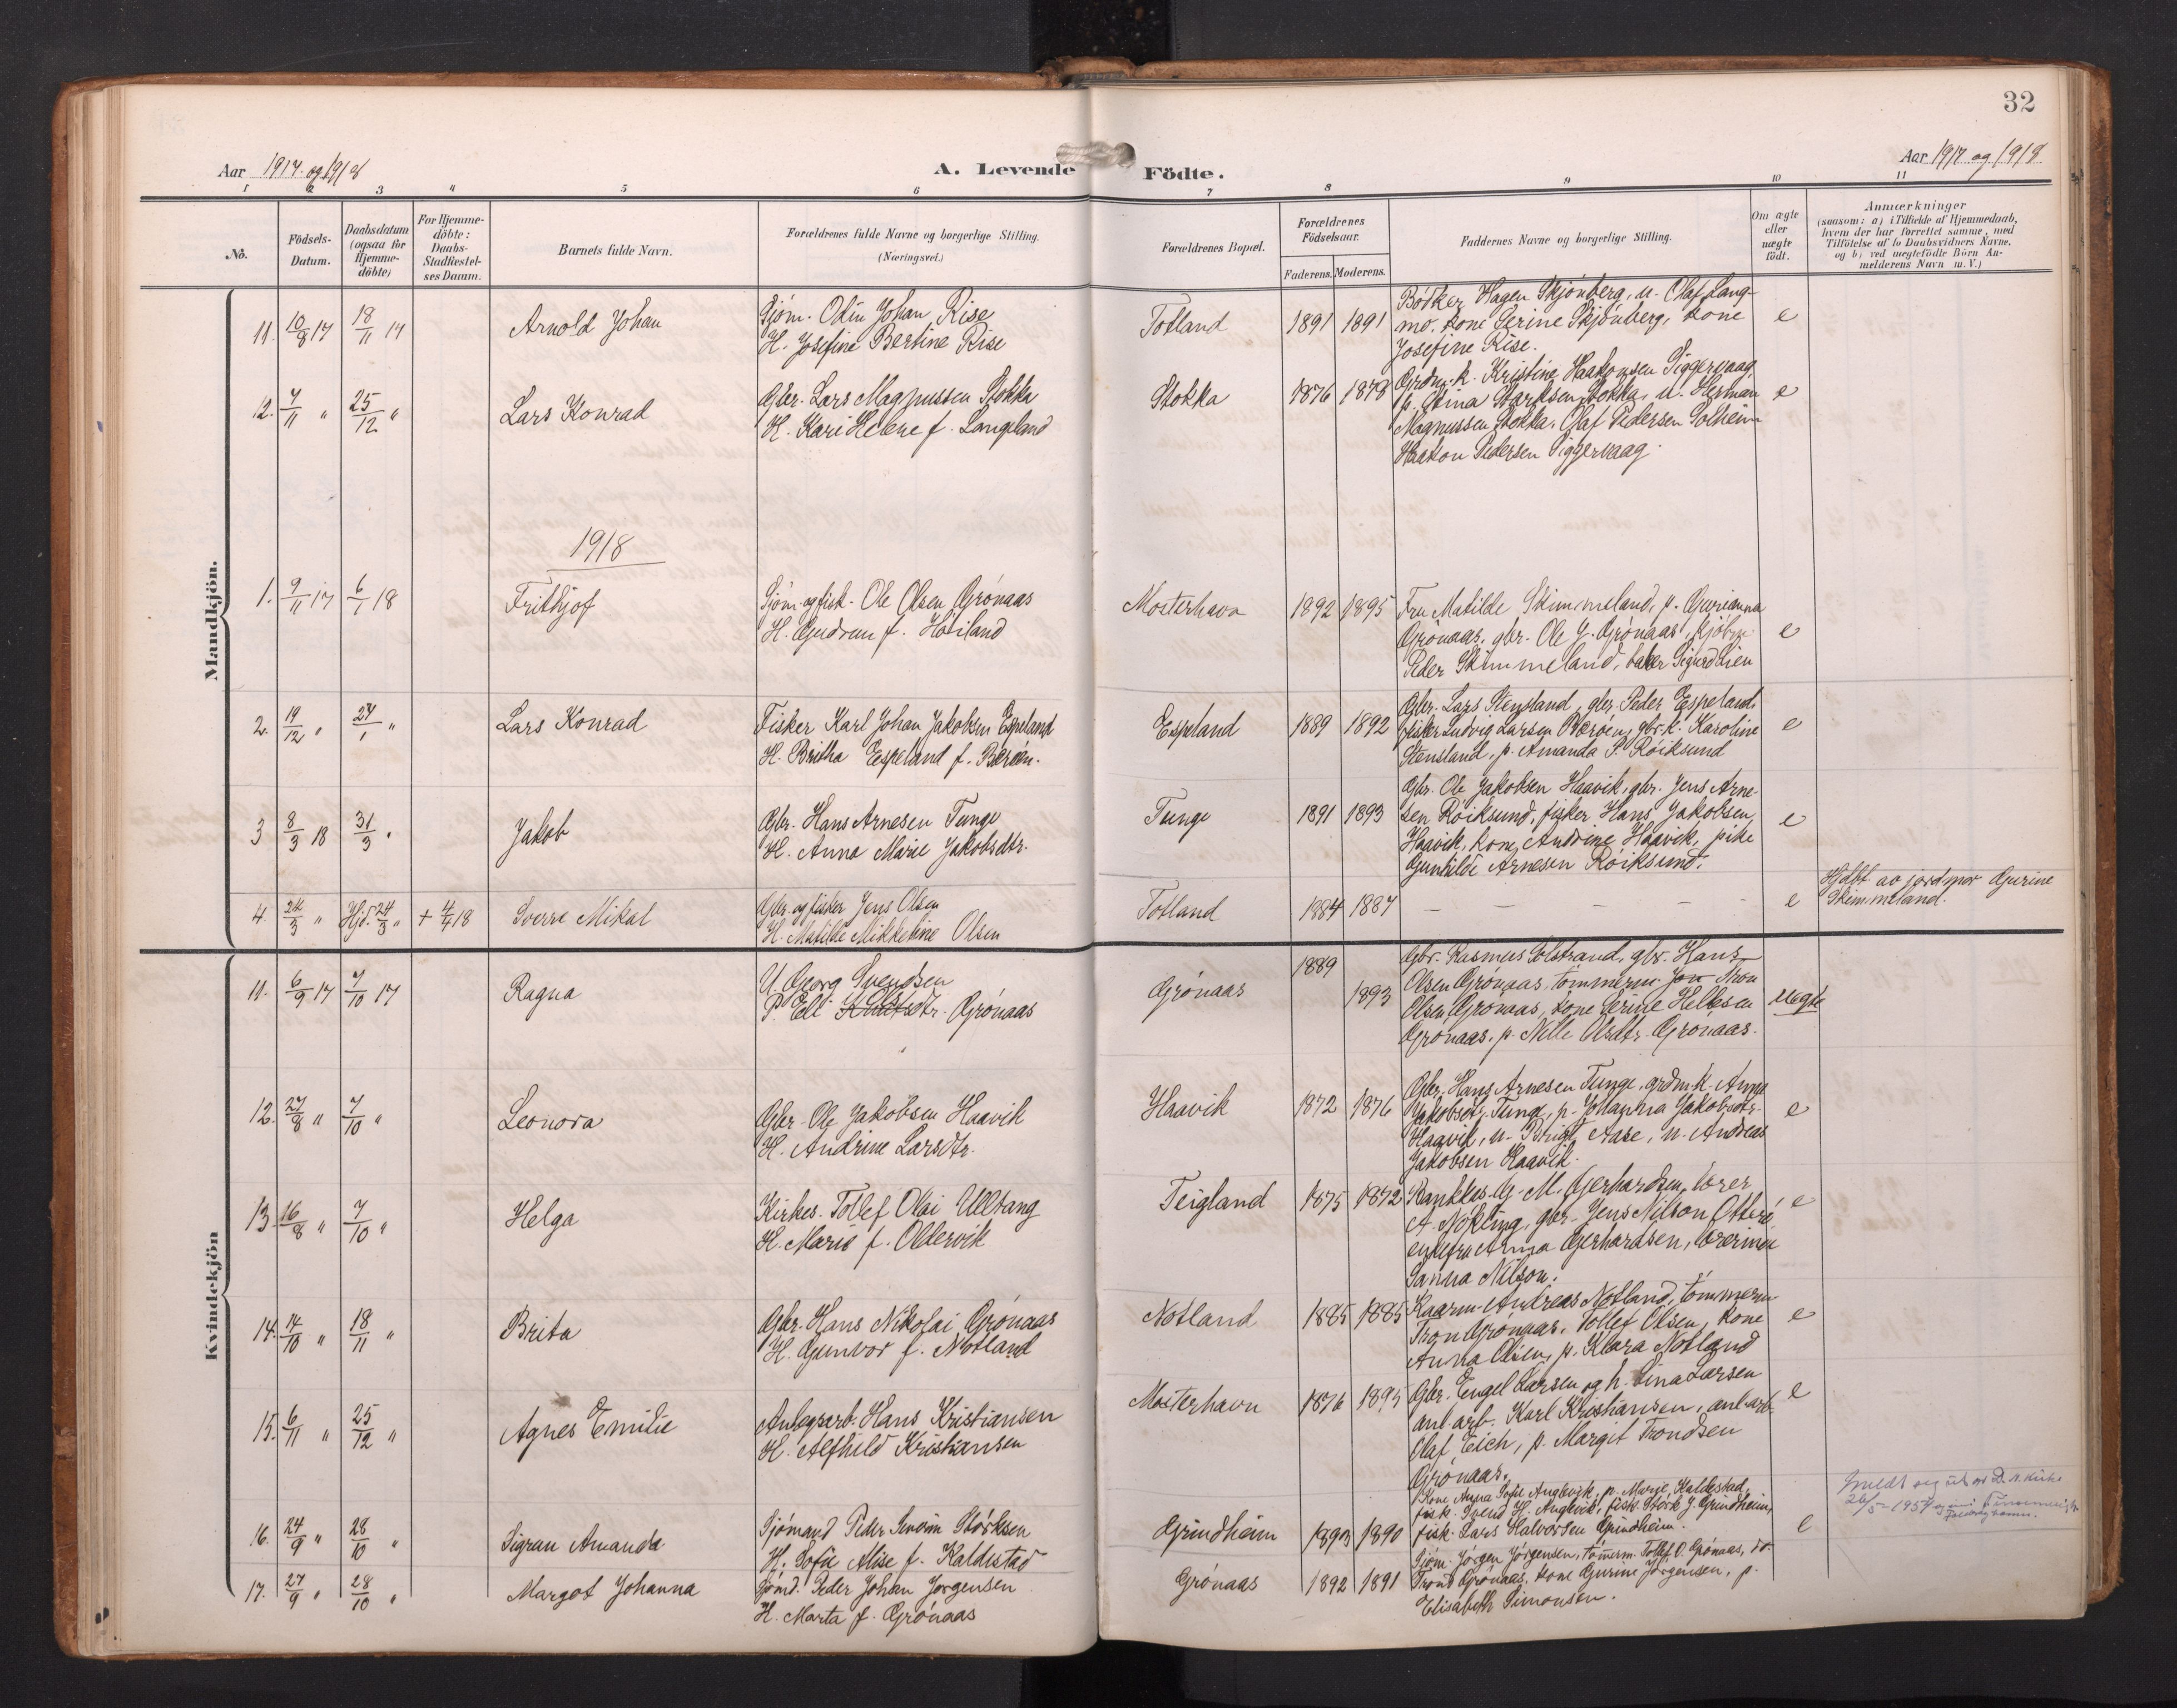 32
Aar 1917 og 1918
A. Levende
Födte.
Aar 1917 og 1918
1 2 3 4 5 6 7 8 9 10 11
No.
Födsels-Datum.
Daabsdatum (ogsaa for Hjemme-döbte)
For Hjemme-döbte: Daabs-Stadfæstel-ses Datum.
Barnets fulde Navn.
Forældrenes fulde Navne og borgerlige Stilling.
(Næringsvei.)
Forældrenes Bopæl.
Forældrenes Födselsaar.
Faderens. Moderens.
Faddernes Navne og borgerlige Stilling.
Om ægte eller uægte födt.
Anmærkninger
(saasom: a) i Tilfælde af Hjemmedaab,
hvem der har forrettet samme, med
Tilföielse af to Daabsvidners Navne,
og b) ved uegtefödte Börn An-
melderens Navn m. V.)
Mandkjön.
11. 10/8 17 18/11 17 Arnold Johan
Sjöm. Odin Johan Rise
H. Josefine Bertine Rise
Totland 1891 1891
Bödker Hagen Skjönberg, u. Olaf Lang-
mo. kone Serine Skjönberg, kone
Josefine Rise.
e
12. 7/11 " 25/12 " Lars Konrad
Gbr. Lars Magnussen Stokka
H. Kari Helene f. Langeland
Stokka 1876 1878
Grdm.k. Kristine Haakonsen Siggervaag
p. Stina Larsen Stokka, u. Herman
Magnussen Stokka. Olaf Pedersen Solheim
Haakon Pedersen Siggervaag.
e
1918
1. 9/11 17 6/1 18 Frithjof
Sjöm. og fisk. Ole Olsen Grönaas
H. Gudrun f. Höiland
Mosterhavn 1892 1895
Fru Matilde Skimmeland, p. Gurianna
Grönaas, gbr. Ole G. Grönaas, kjöbm.
Peder Skimmeland, baker Sigurd Lien
e
2. 19/12 " 27/1 " Lars Konrad
Fisker Karl Johan Jakobsen Espeland
H. Britha Espeland f. Bærøen.
Espeland 1889 1892
Gbr. Lars Stensland, gbr. Peder Espeland,
fisker Ludvig Larsen Bærøen, gbr.k. Karoline
Stensland, p. Amanda P. Röiksund
e
3 8/3 18 31/3 " Jakob
Gbr. Hans Arnesen Tunge
H. Anna Marie Jakobsdtr.
Tunge 1891 1893
Gbr. Ole Jakobsen Haavik, gbr. Jens Arne-
sen Röiksund, fisker Hans Jakobsen
Haavik, kone Andrine Haavik, pike
Gunhilde Arnesen Röiksund.
e
4 24/3 " Hjd. 24/3 " + 4/4 18 Sverre Mikal
Gbr. og fisker Jens Olsen
H. Matilde Mikkeline Olsen
Totland 1884 1887 – – – – – e
Hjdbt av jordmor Gurine
Skimmeland.
Kvindekjön
11. 6/9 17 7/10 17 Ragna
U. Georg Svendsen
P. Ell Olsdtr. Grönaas
Grönaas 1889 1893
Gbr. Rasmus Solstrand, gbr. Hans
Olsen Grönaas, tömmerm. Jon Tron
Olsen Grönaas, kone Serine Hellesen
Grönaas, p. Nille Olsdtr. Grönaas.
uegte
12. 27/8 " 7/10 " Leonora
Gbr. Ole Jakobsen Haavik
H. Andrine Larsdtr.
Haavik 1872 1876
Gbr. Hans Arnesen Tunge, grdm.k. Anna
Jakobsdtr. Tunge, p. Johanna Jakobsdtr.
Haavik, u. Brigt Aase, u. Andreas
Jakobsen Haavik.
e
13. 16/8 " 7/10 " Helga
Kirkes. Tollef Olai Ulltang
H. Marie f. Oldervik
Teigland 1875 1872
Bankkas. G. M. Gjerhardsen, lærer
A. Nökling, gbr. Jens Nilson Otterö,
enkefru Anna Gjerhardsen, lærerinde
Sanna Nilson.
e
14. 14/10 " 18/11 " Brita
Gbr. Hans Nikolai Grönaas
H. Gunvor f. Notland
Notland 1885 1885
Kaarm. Andreas Notland, tömmerm
Tron Grönaas. Tollef Olsen, kone
Anna Olsen, p. Klara Notland
e
15. 6/11 " 25/12 " Agnes Emilie
Anlegsarb. Hans Kristiansen
H. Alfhild Kristiansen
Mosterhavn 1876 1895
Gbr. Engel Larsen og h. Lina Larsen
anl.arb. Karl Kristiansen, anl.arb.
Olaf Eich, p. Margit Trondsen
Grönaas.
e
16. 24/9 " 28/10 " Sigrun Amanda
Sjömand Peder Severin Störksen
H. Sofie Alise f. Kaldestad
Grindheim 1893 1890
Kone Anna Sofie Anglevik, p. Marie Kaldestad,
fisk. Svend H. Anglevik, fisk. Störk J. Grindheim,
fisk. Lars Halvorsen Grindheim.
e
Innmeldt seg ut av D. n. kirke
26/5-1954
17. 27/9 " 28/10 " Margot Johanna
Sjömd. Peder Johan Jørgensen
H. Marta f. Grönaas
Grönaas 1892 1891
Sjöm. Jörgen Jörgensen, tömerm. Tollef O. Grönaas, do.
Trond Grönaas, kone Gurine Jörgensen, p.
Elisabeth Simonsen.